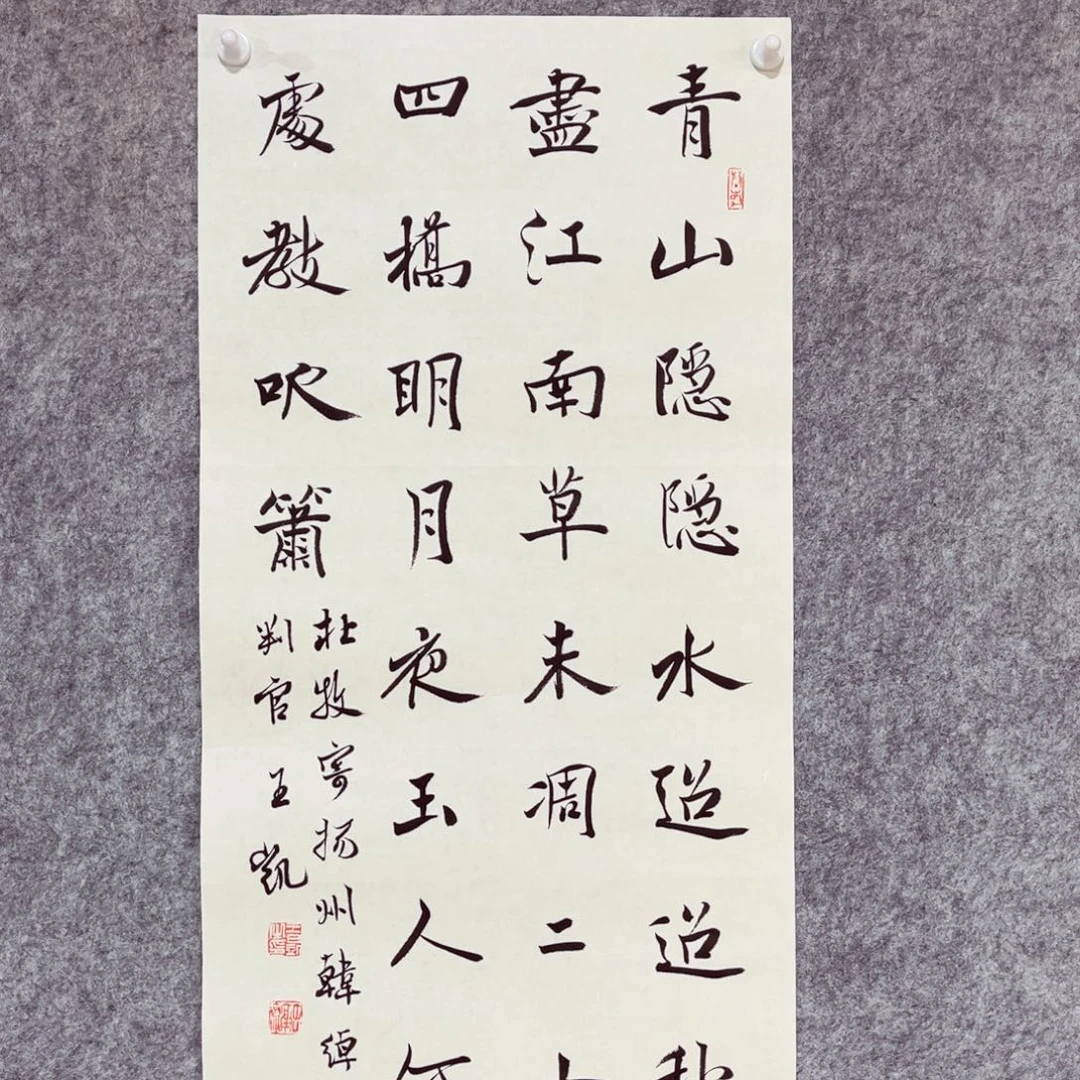 青山隱隱水迢迢秋
盡江南草未凋二十
四橋明月夜玉人何
處教吹簫
杜牧寄揚州韓綽
判官 王凯